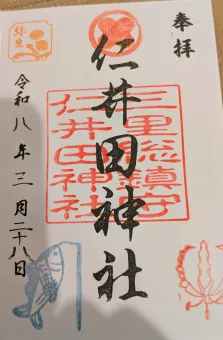 奉拝
仁井田神社
三里総鎮守
仁井田神社
令和八年三月二十八日
弥生